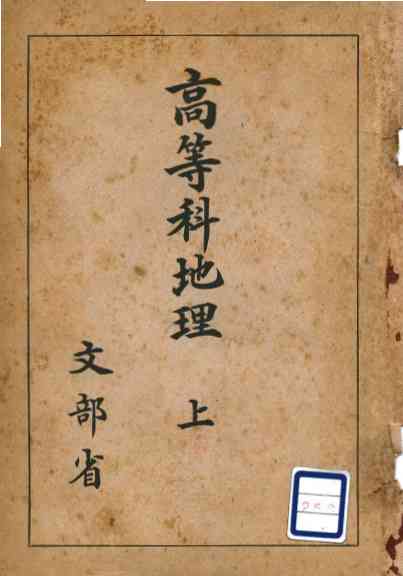 高等科地理 上
文部省